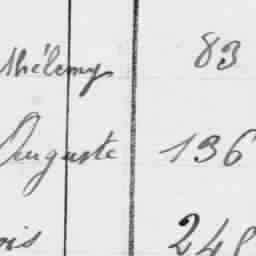 thélemy 83
Auguste 136
ois 248